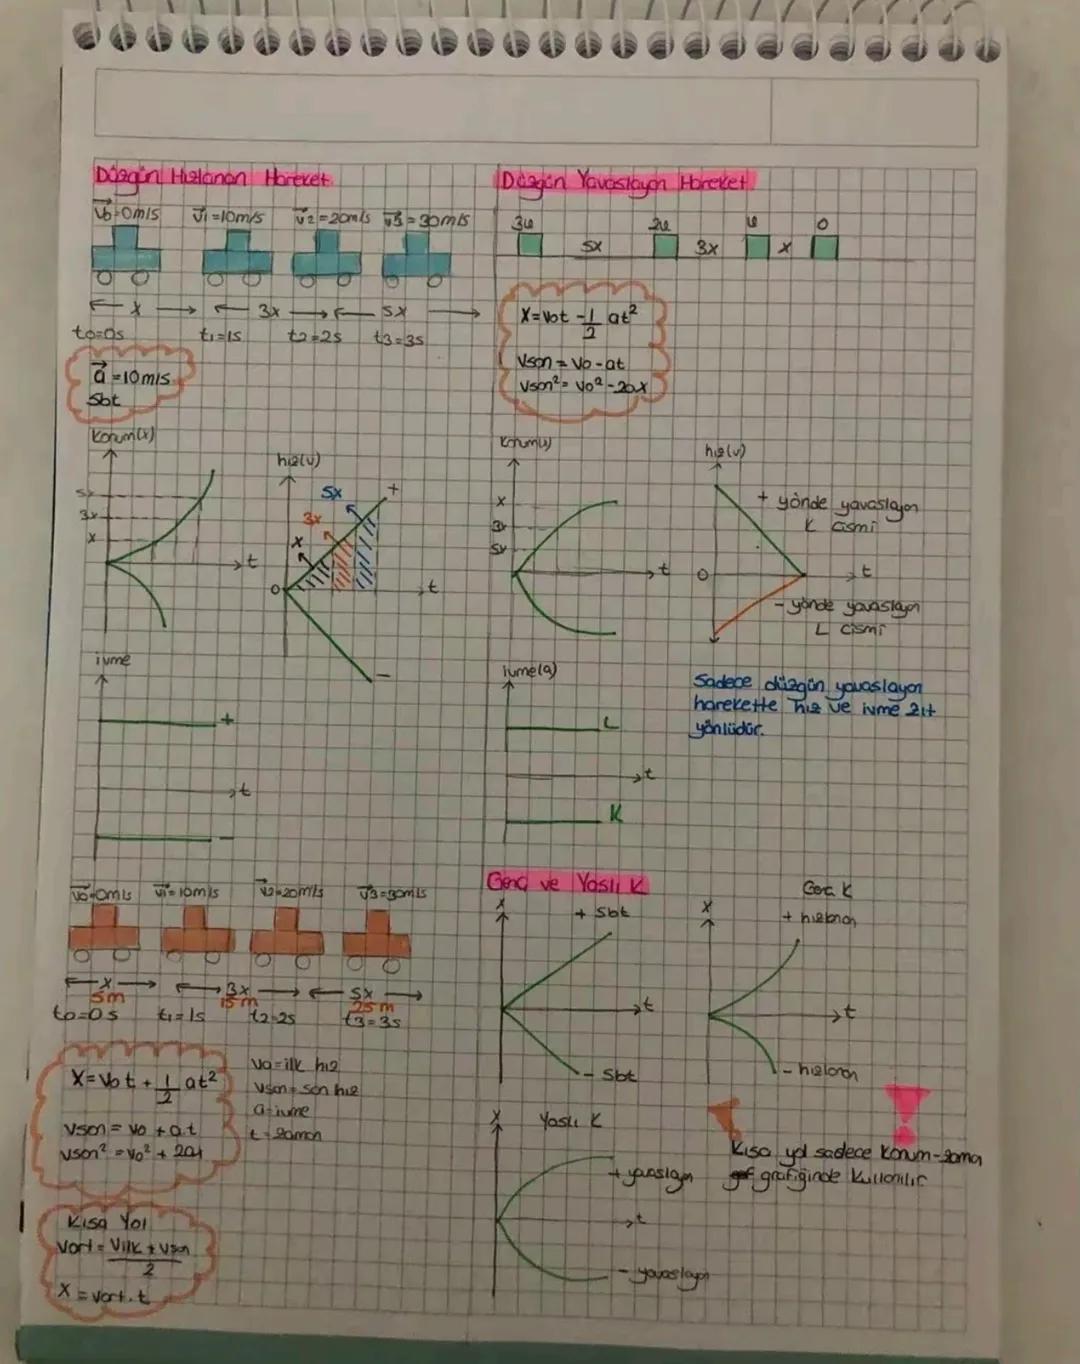 Düzgün Hızlanan Hareket
v0=0m/s v1=10m/s v2=20m/s v3=30m/s
x 3x 5x
t0=0s t1=1s t2=2s t3=3s
a=10m/s
Sbt
Konum(x)
5x
3x
x
t
hız(v)
5x
+
3x
x
0
t
-
ivme
+
t
-
v0=0m/s v1=10m/s v2=20m/s v3=30m/s
x 3x 5x
5m 15m 25m
t0=0s t1=1s t2=2s t3=3s
X=V0t+1/2at²
Vson=V0+a.t
Vson²=V0²+2ax
V0=ilk hız
Vson=Son hız
a=ivme
t=zaman
Kısa Yol
Vort=Vilk+Vson/2
X=Vort.t
Düzgün Yavaslayan Hareket
3v 2v v 0
5x 3x x
X=V0t-1/2at²
Vson=V0-at
Vson²=V0²-2ax
Konum(x)
x
3x
5x
t
hız(v)
+ yönde yavaslayan
K cismi
0
t
- yönde yavaslayan
L cismi
ivme(a)
L
t
K
Sadece düzgün yavaslayan
harekette hız ve ivme zıt
yönlüdür.
Genç ve Yaslı K
x
+ Sbt
t
- Sbt
Genc K
x
+ hızlanan
t
- hızlanan
x
Yaslı K
+ yavaslayan
t
- yavaslayan
Kısa yol sadece Konum-zaman
grafiğinde Kullanılır